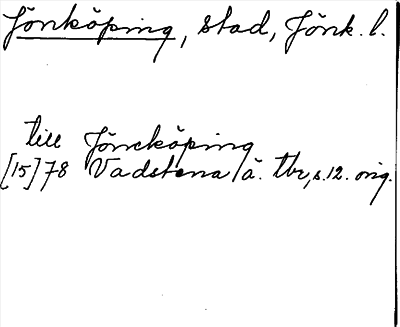 Jönköping, stad, Jönk. l.
till Jöncköping
[15]78 Vadstena ä. tbr, s.12. orig.